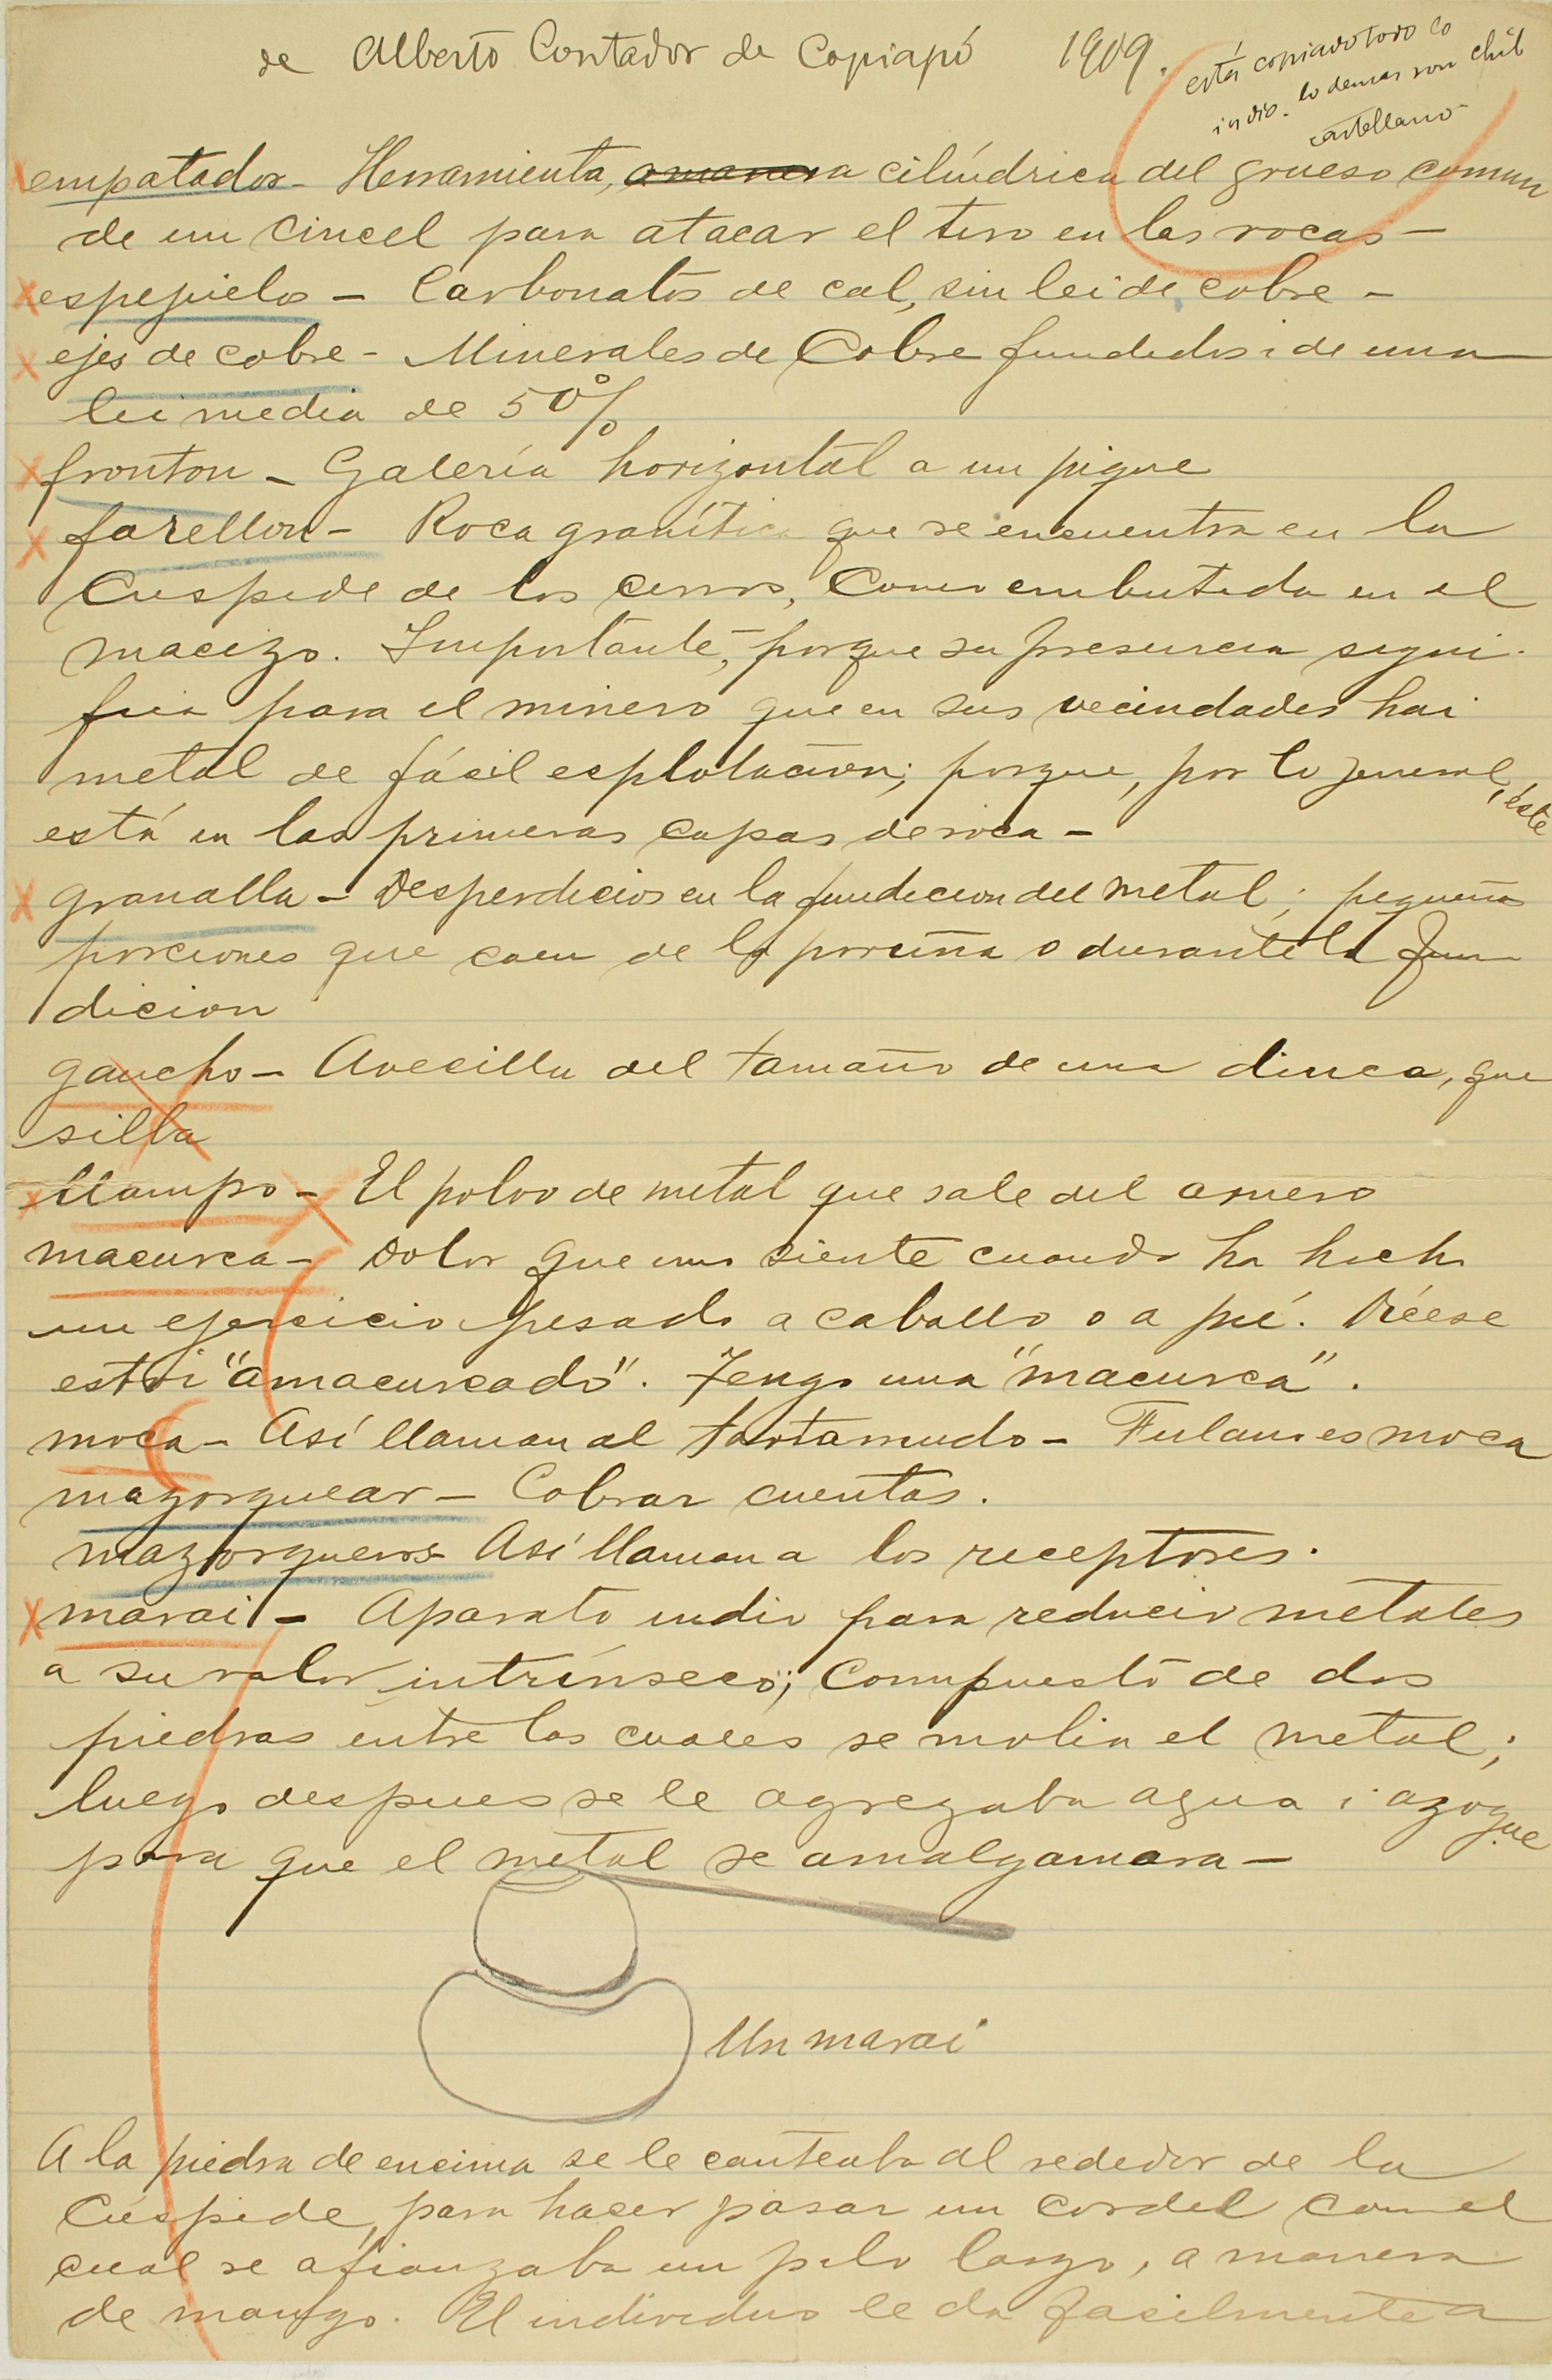 de Alberto Contador de Copiapó 1909.
está copiado todo lo
indio. lo demas son chil
castellano
empatador - Herramienta, cilíndrica del grueso comun
de un cincel para atacar el tiro en las rocas -
espejuelos - Carbonatos de cal, sin lei de cobre -
ejes de cobre - Minerales de Cobre fundidos i de una
lei media de 50%
fronton - Galería horizontal a un pique
farellon - Roca granítica que se encuentra en la
Cuspide de los cerros, Como embutida en el
macizo. Importante, porque su presencia signi-
fica para el minero que en sus vecindades hai
metal de fácil esplotacion; porque, por lo jeneral, éste
está en las primeras capas de roca -
granalla - Desperdicios en la fundicion del metal; pequeñas
porciones que caen de la poruña o durante la fun
dicion
gaucho - Avecilla del tamaño de una diuca, que
silba
llampo - El polvo de metal que sale del arnero
macurca - Dolor que uno siente cuando ha hecho
un ejercicio pesado a caballo o a pié. Dícese
estoi "amacurcado". Tengo una "macurca".
moca - Así llaman al tartamudo - Fulano es moca
mazorquear - Cobrar cuentas.
mazorqueros - Así llaman a los receptores.
marai - Aparato indio para reducir metales
a su valor intrínseco; Compuesto de dos
piedras entre las cuales se molia el metal;
luego despues se le agregaba agua i azogue
para que el metal se amalgamara -
Un marai
A la piedra de encima se le canteaba al rededor de la
Cúspide, para hacer pasar un cordel con el
cual se afianzaba un palo largo, a manera
de mango. El individuo le da facilmente a